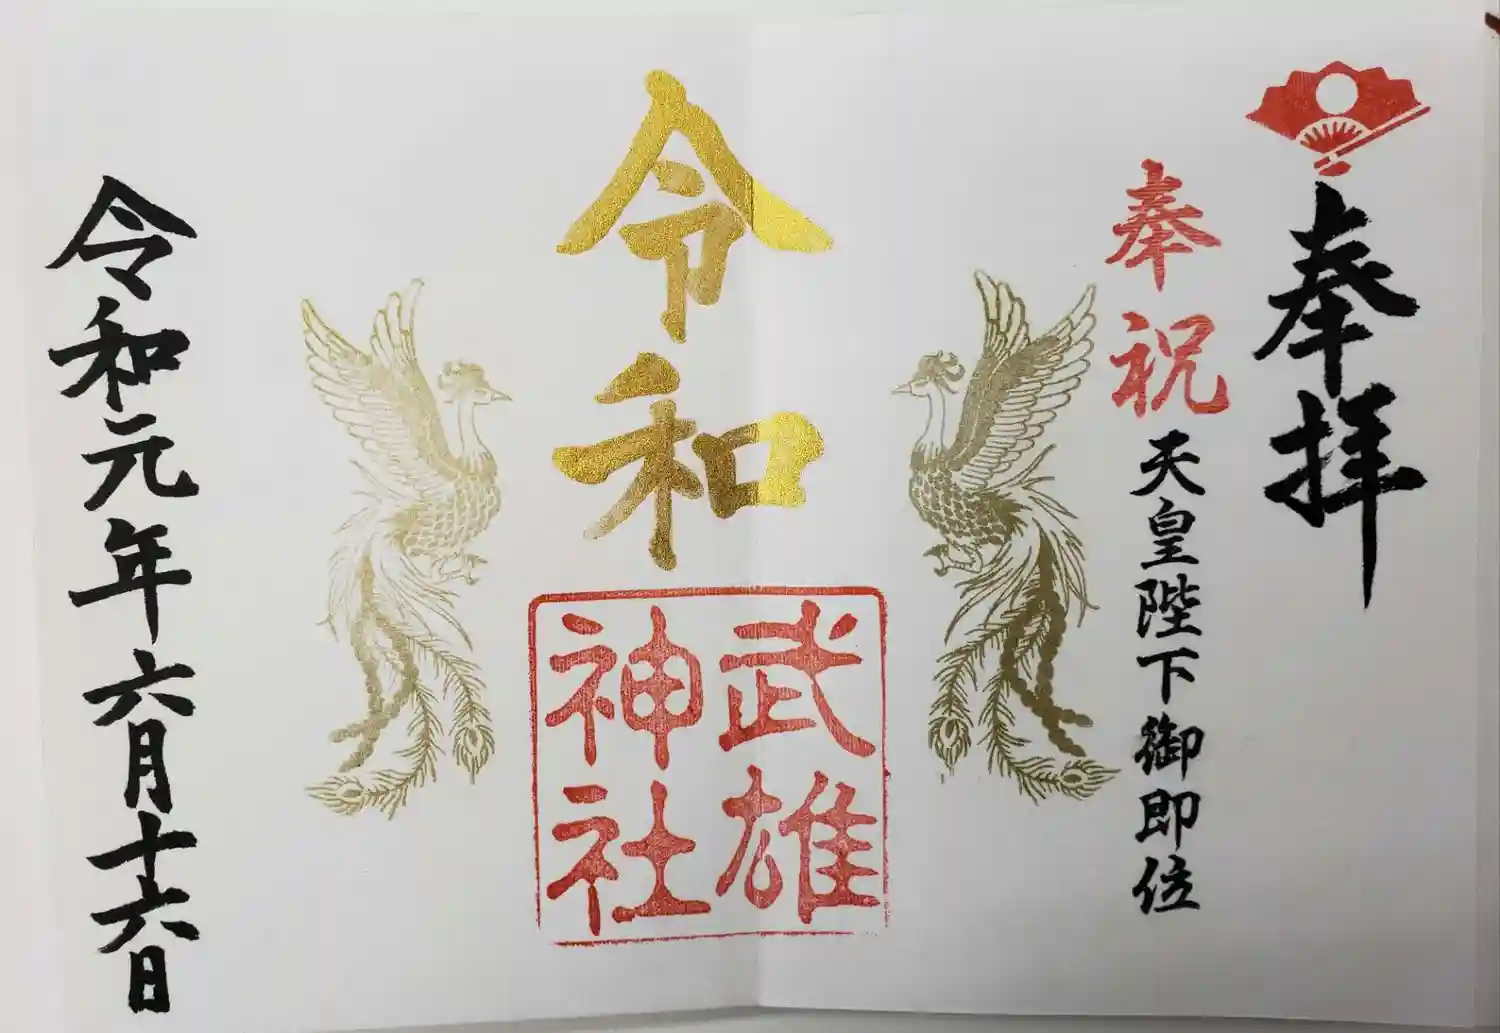 奉拝
奉祝
天皇陛下御即位
令和
武雄
神社
令和元年六月十六日